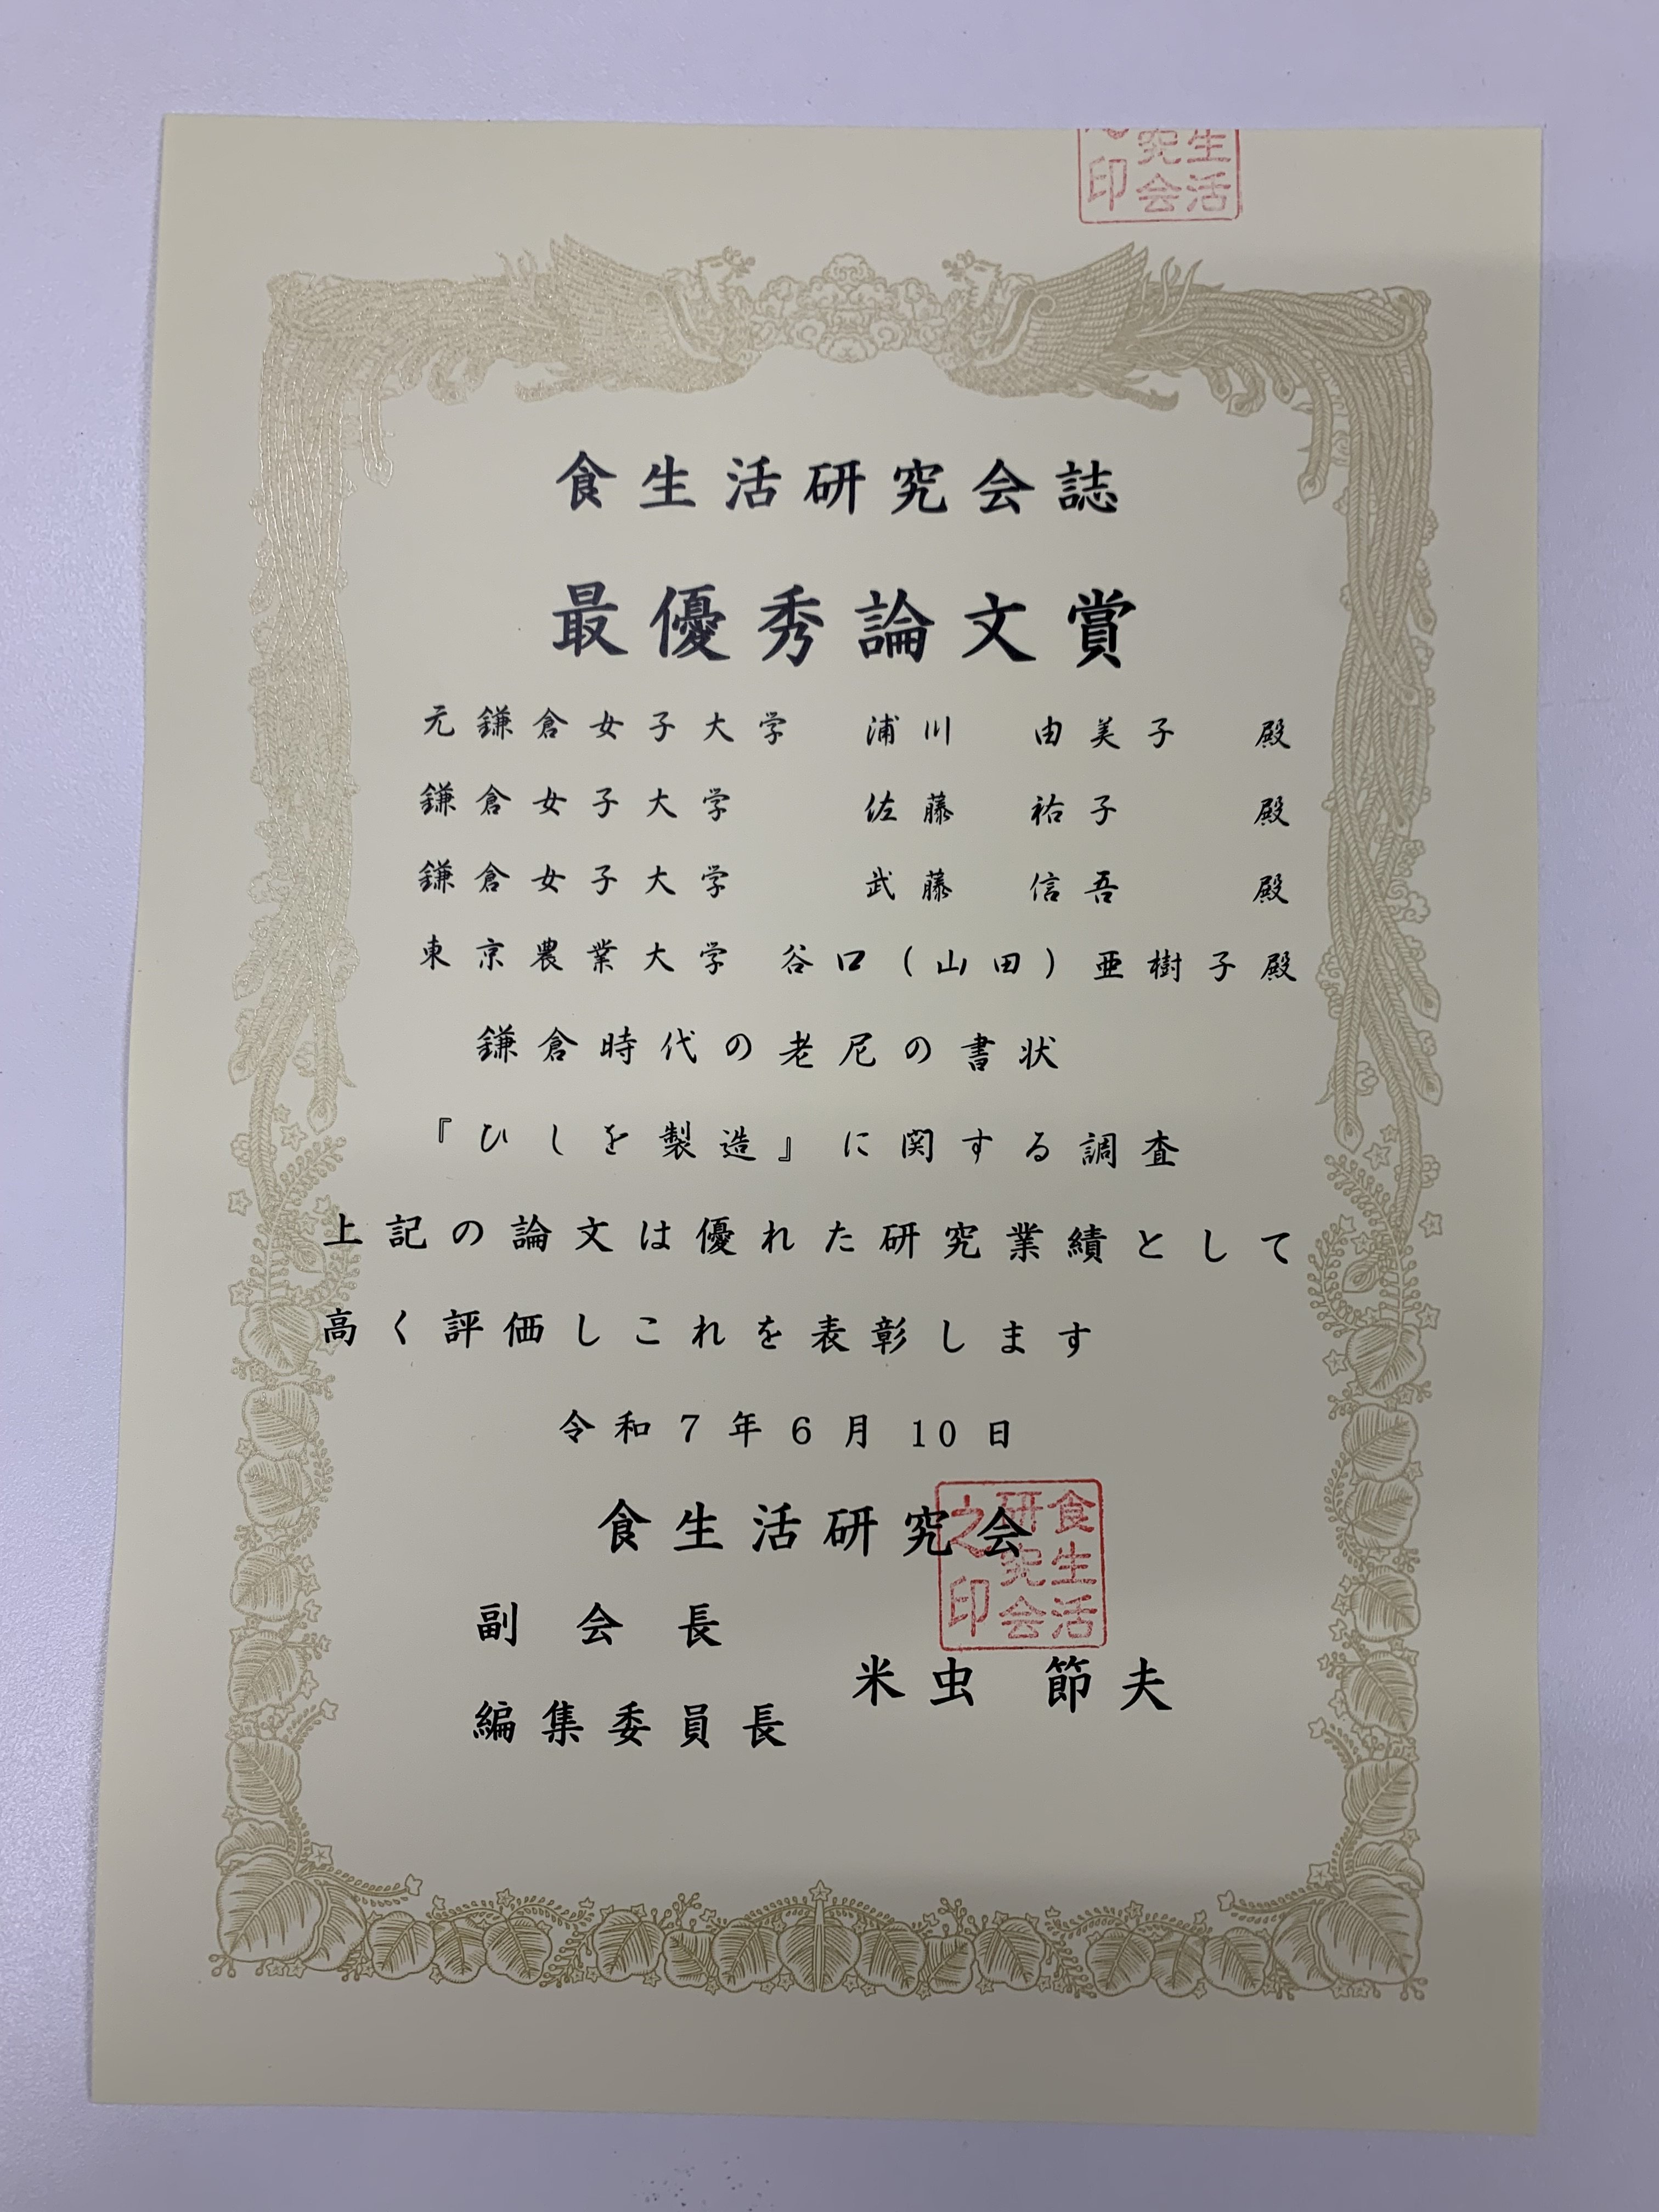 生活
究会
印
食生活研究会誌
最優秀論文賞
元鎌倉女子大学 浦川 由美子 殿
鎌倉女子大学 佐藤 祐子 殿
鎌倉女子大学 武藤 信吾 殿
東京農業大学 谷口(山田)亜樹子殿
鎌倉時代の老尼の書状
『ひしを製造』に関する調査
上記の論文は優れた研究業績として
高く評価しこれを表彰します
令和7年6月10日
食生活研究会
食生活
研究会
之印
副会長
編集委員長
米虫 節夫